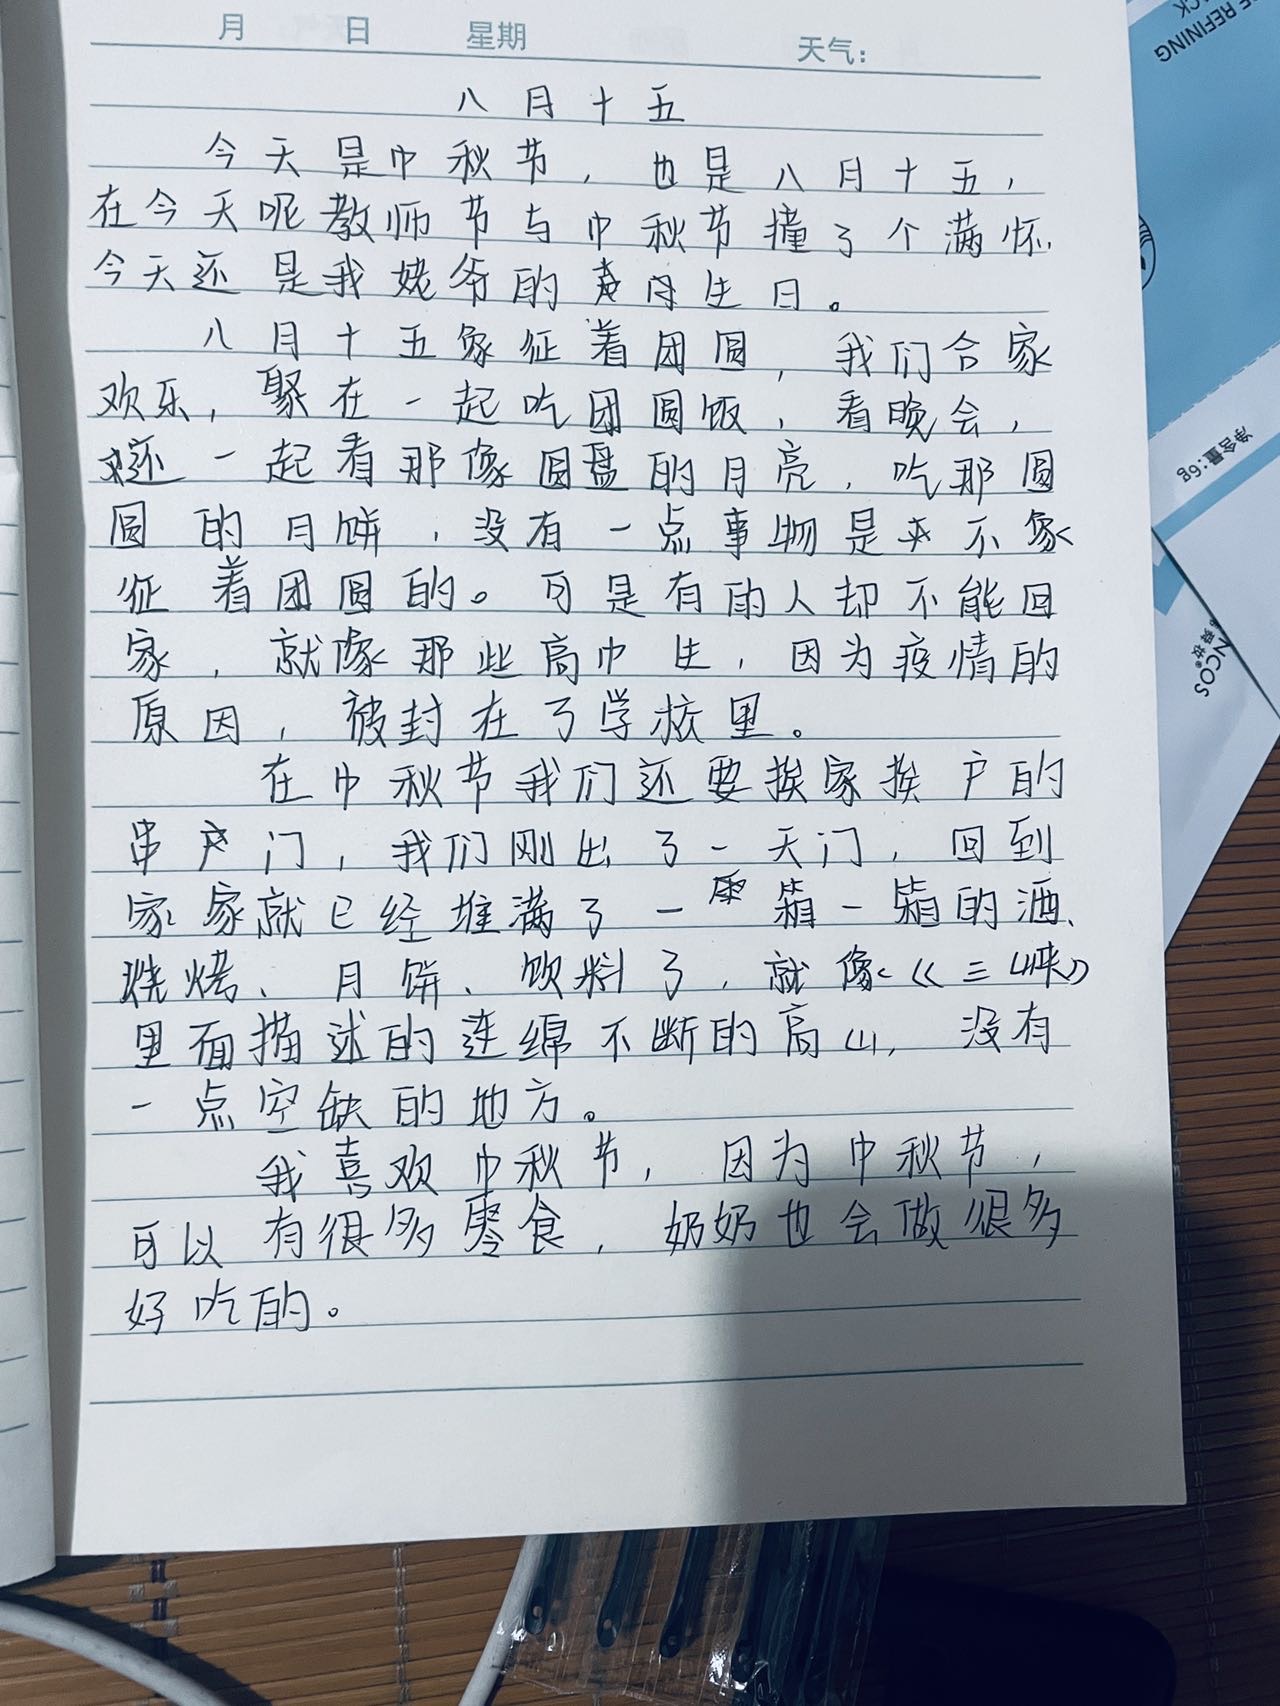 月 日 星期 天气：
八月十五
今天是中秋节，也是八月十五，
在今天呢教师节与中秋节撞了个满怀，
今天还是我姥爷的生日。
八月十五象征着团圆，我们合家
欢乐，聚在一起吃团圆饭，看晚会，
还一起看那像圆盘的月亮，吃那圆
圆的月饼，没有一点事物是不象
征着团圆的。可是有的人却不能回
家，就像那些高中生，因为疫情的
原因，被封在了学校里。
在中秋节我们还要挨家挨户的
串门，我们刚出了一天门，回到
家家就已经堆满了一箱一箱的酒、
烧烤、月饼、饮料了，就像《三峡》
里面描述的连绵不断的高山，没有
一点空缺的地方。
我喜欢中秋节，因为中秋节，
可以有很多零食，奶奶也会做很多
好吃的。
REFINING
净含量：6g
NCOS